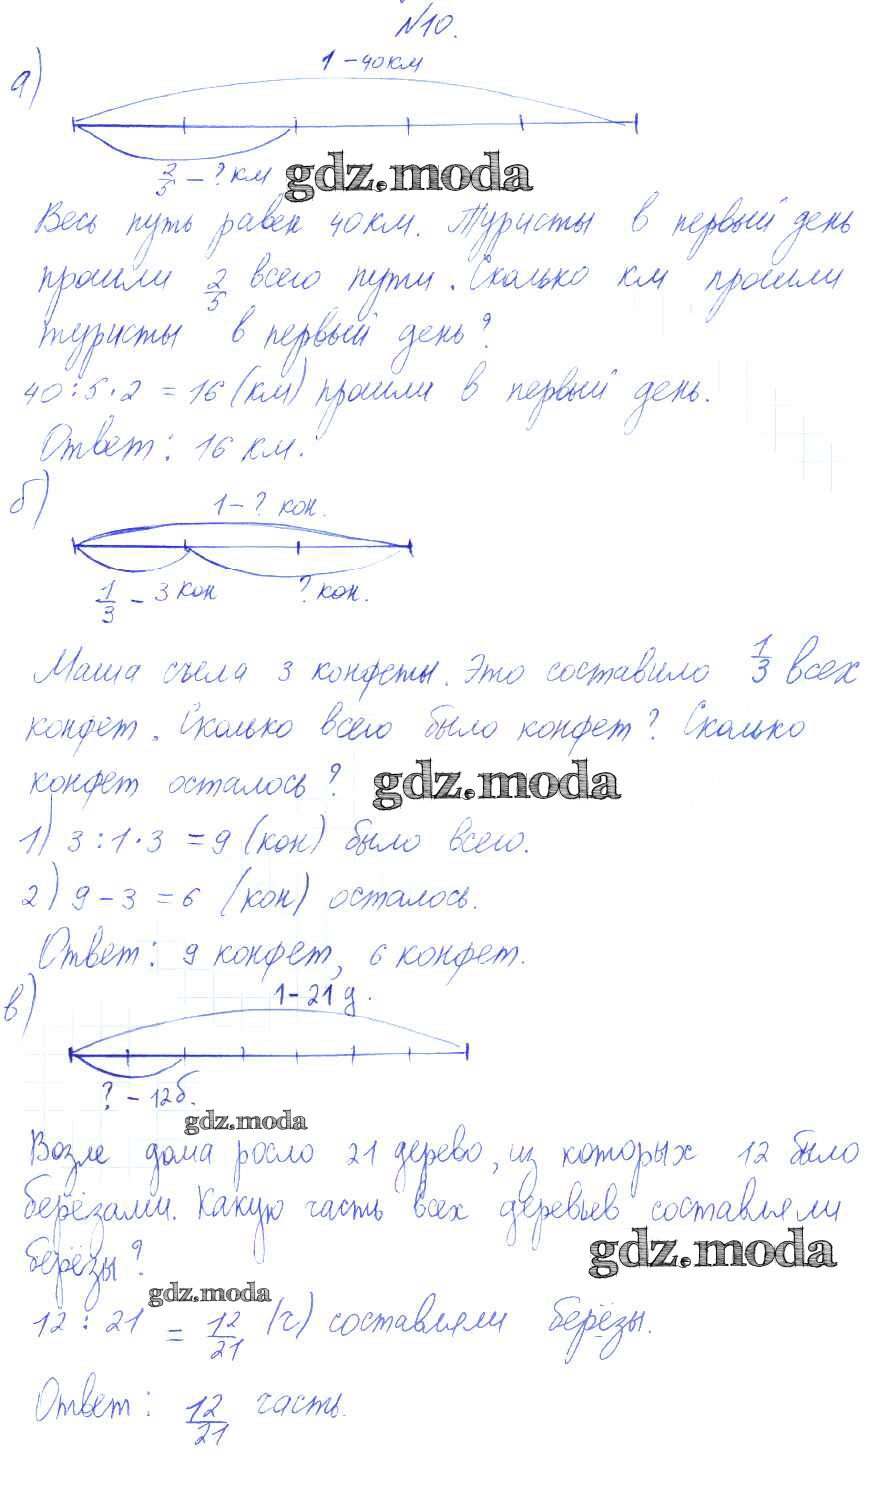 №10.
а)
1 – 40 км
2/5 – ? км
gdz.moda
Весь путь равен 40 км. Туристы в первый день
прошли 2/5 всего пути. Сколько км прошли
туристы в первый день?
40 : 5 · 2 = 16 (км) прошли в первый день.
Ответ: 16 км.
б)
1 – ? кон.
1/3 – 3 кон
? кон.
Маша съела 3 конфеты. Это составило 1/3 всех
конфет. Сколько всего было конфет? Сколько
конфет осталось?
gdz.moda
1) 3 : 1 · 3 = 9 (кон) было всего.
2) 9 – 3 = 6 (кон) осталось.
Ответ: 9 конфет, 6 конфет.
в)
1 – 21 д.
? – 12 б.
gdz.moda
Возле дома росло 21 дерево, из которых 12 было
берёзами. Какую часть всех деревьев составляли
берёзы?
gdz.moda
gdz.moda
12 : 21 = 12/21 (ч) составляли берёзы.
Ответ: 12/21 часть.